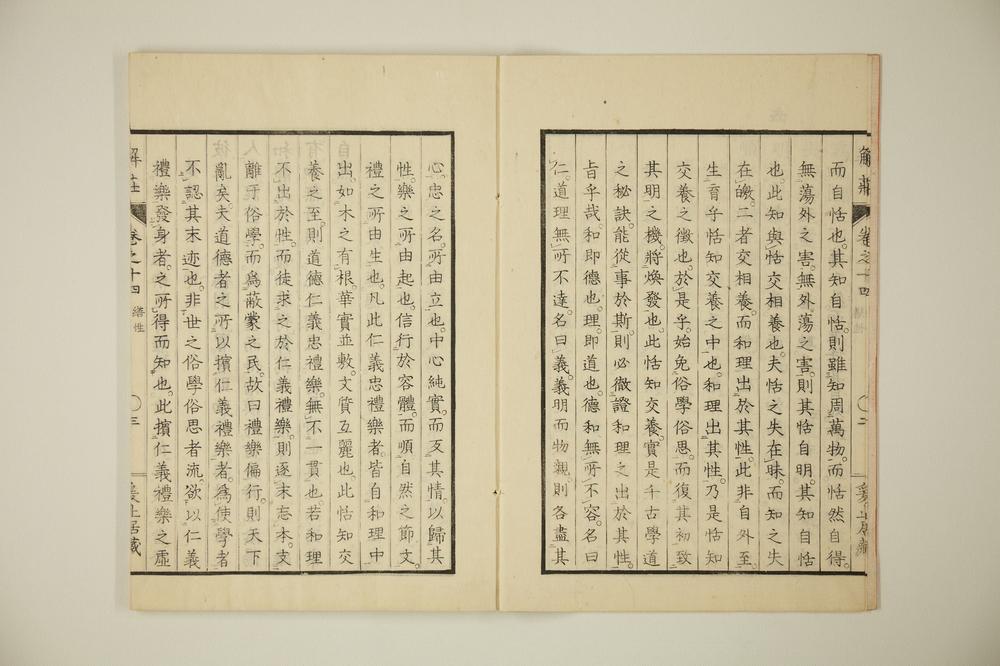 解莊 卷之十四 繕性 〇二 居藏
而自恬也。其知自恬。則雖知周萬物。而恬然自得。
無蕩外之害。無外蕩之害。則其恬自明。其知自恬
也。此知與恬交相養也。夫恬之失在昧。而知之失
在皦。二者交相養。而和理出於其性。此非自外至
生育乎恬知交養之中也。和理出其性。乃是恬知
交養之徵也。於是乎。始免俗學俗思。而復其初致
其明之機。將煥發也。此恬知交養。實是千古學道
之秘訣。能從事於斯。則必徵證和理之出於其性。
旨乎哉。和即德也。理。即道也。德和無所不容。名曰
仁。道理無所不達。名曰義。義明而物親。則各盡其
心。忠之名。所由立也。中心純實。而反其情。以歸其
性。樂之所由起也。信行於容體。而順自然之節文。
禮之所由生也。凡此仁義忠禮樂者。皆自和理中
出。如木之有根。華實並敷。文質互麗也。此恬知交
養之至。則道德仁義忠禮樂。無不一貫也。若和理
不出於性。而徒求之於仁義禮樂。則逐末忘本。支
離乎俗學。而爲蔽蒙之民。故曰禮樂偏行。則天下
亂矣。夫道德者之所以擯仁義禮樂者。爲使學者
不認其末迹也。非世之俗學俗思者流。欲以仁義
禮樂發身者。之所得而知也。此擯仁義禮樂之虛
解莊 卷之十四 繕性 〇三 居藏